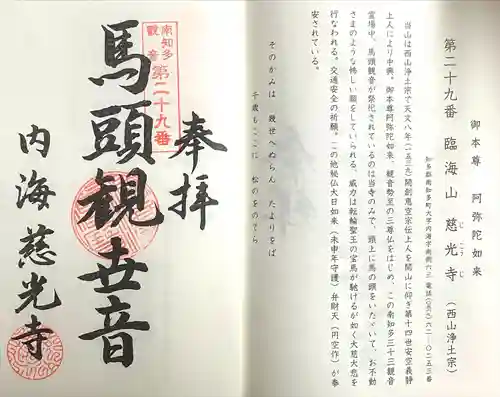 御本尊 阿弥陀如来
第二十九番 臨海山 慈光寺（西山浄土宗）
じこうじ
知多郡南知多町大字内海字南側六三 電話（〇六九）六二―〇二五三番
当山は西山浄土宗で天文八年（一五三九）開創恵空宗伝上人を開山に仰ぎ第十四世安空義静
上人により中興。御本尊阿弥陀如来、観音勢至の三尊仏をはじめ、この南知多三十三観音
霊場中、馬頭観音が祭祀されているのは当寺のみで、頭上に馬の頭をいたゞいて、お不動
さまのような怖しい顔をしていられる。威力は転輪聖王の宝馬が馳けるが如く大慈大悲を
行なわれる。交通安全の祈願。この他秘仏大日如来（未申年守護）弁財天（円空作）が奉
安されている。
そのかみは 幾世へぬらん たよりをば
千歳もここに 松のをのてら
奉拝
南知多
観音
第二十九番
馬頭観世音
内海 慈光寺